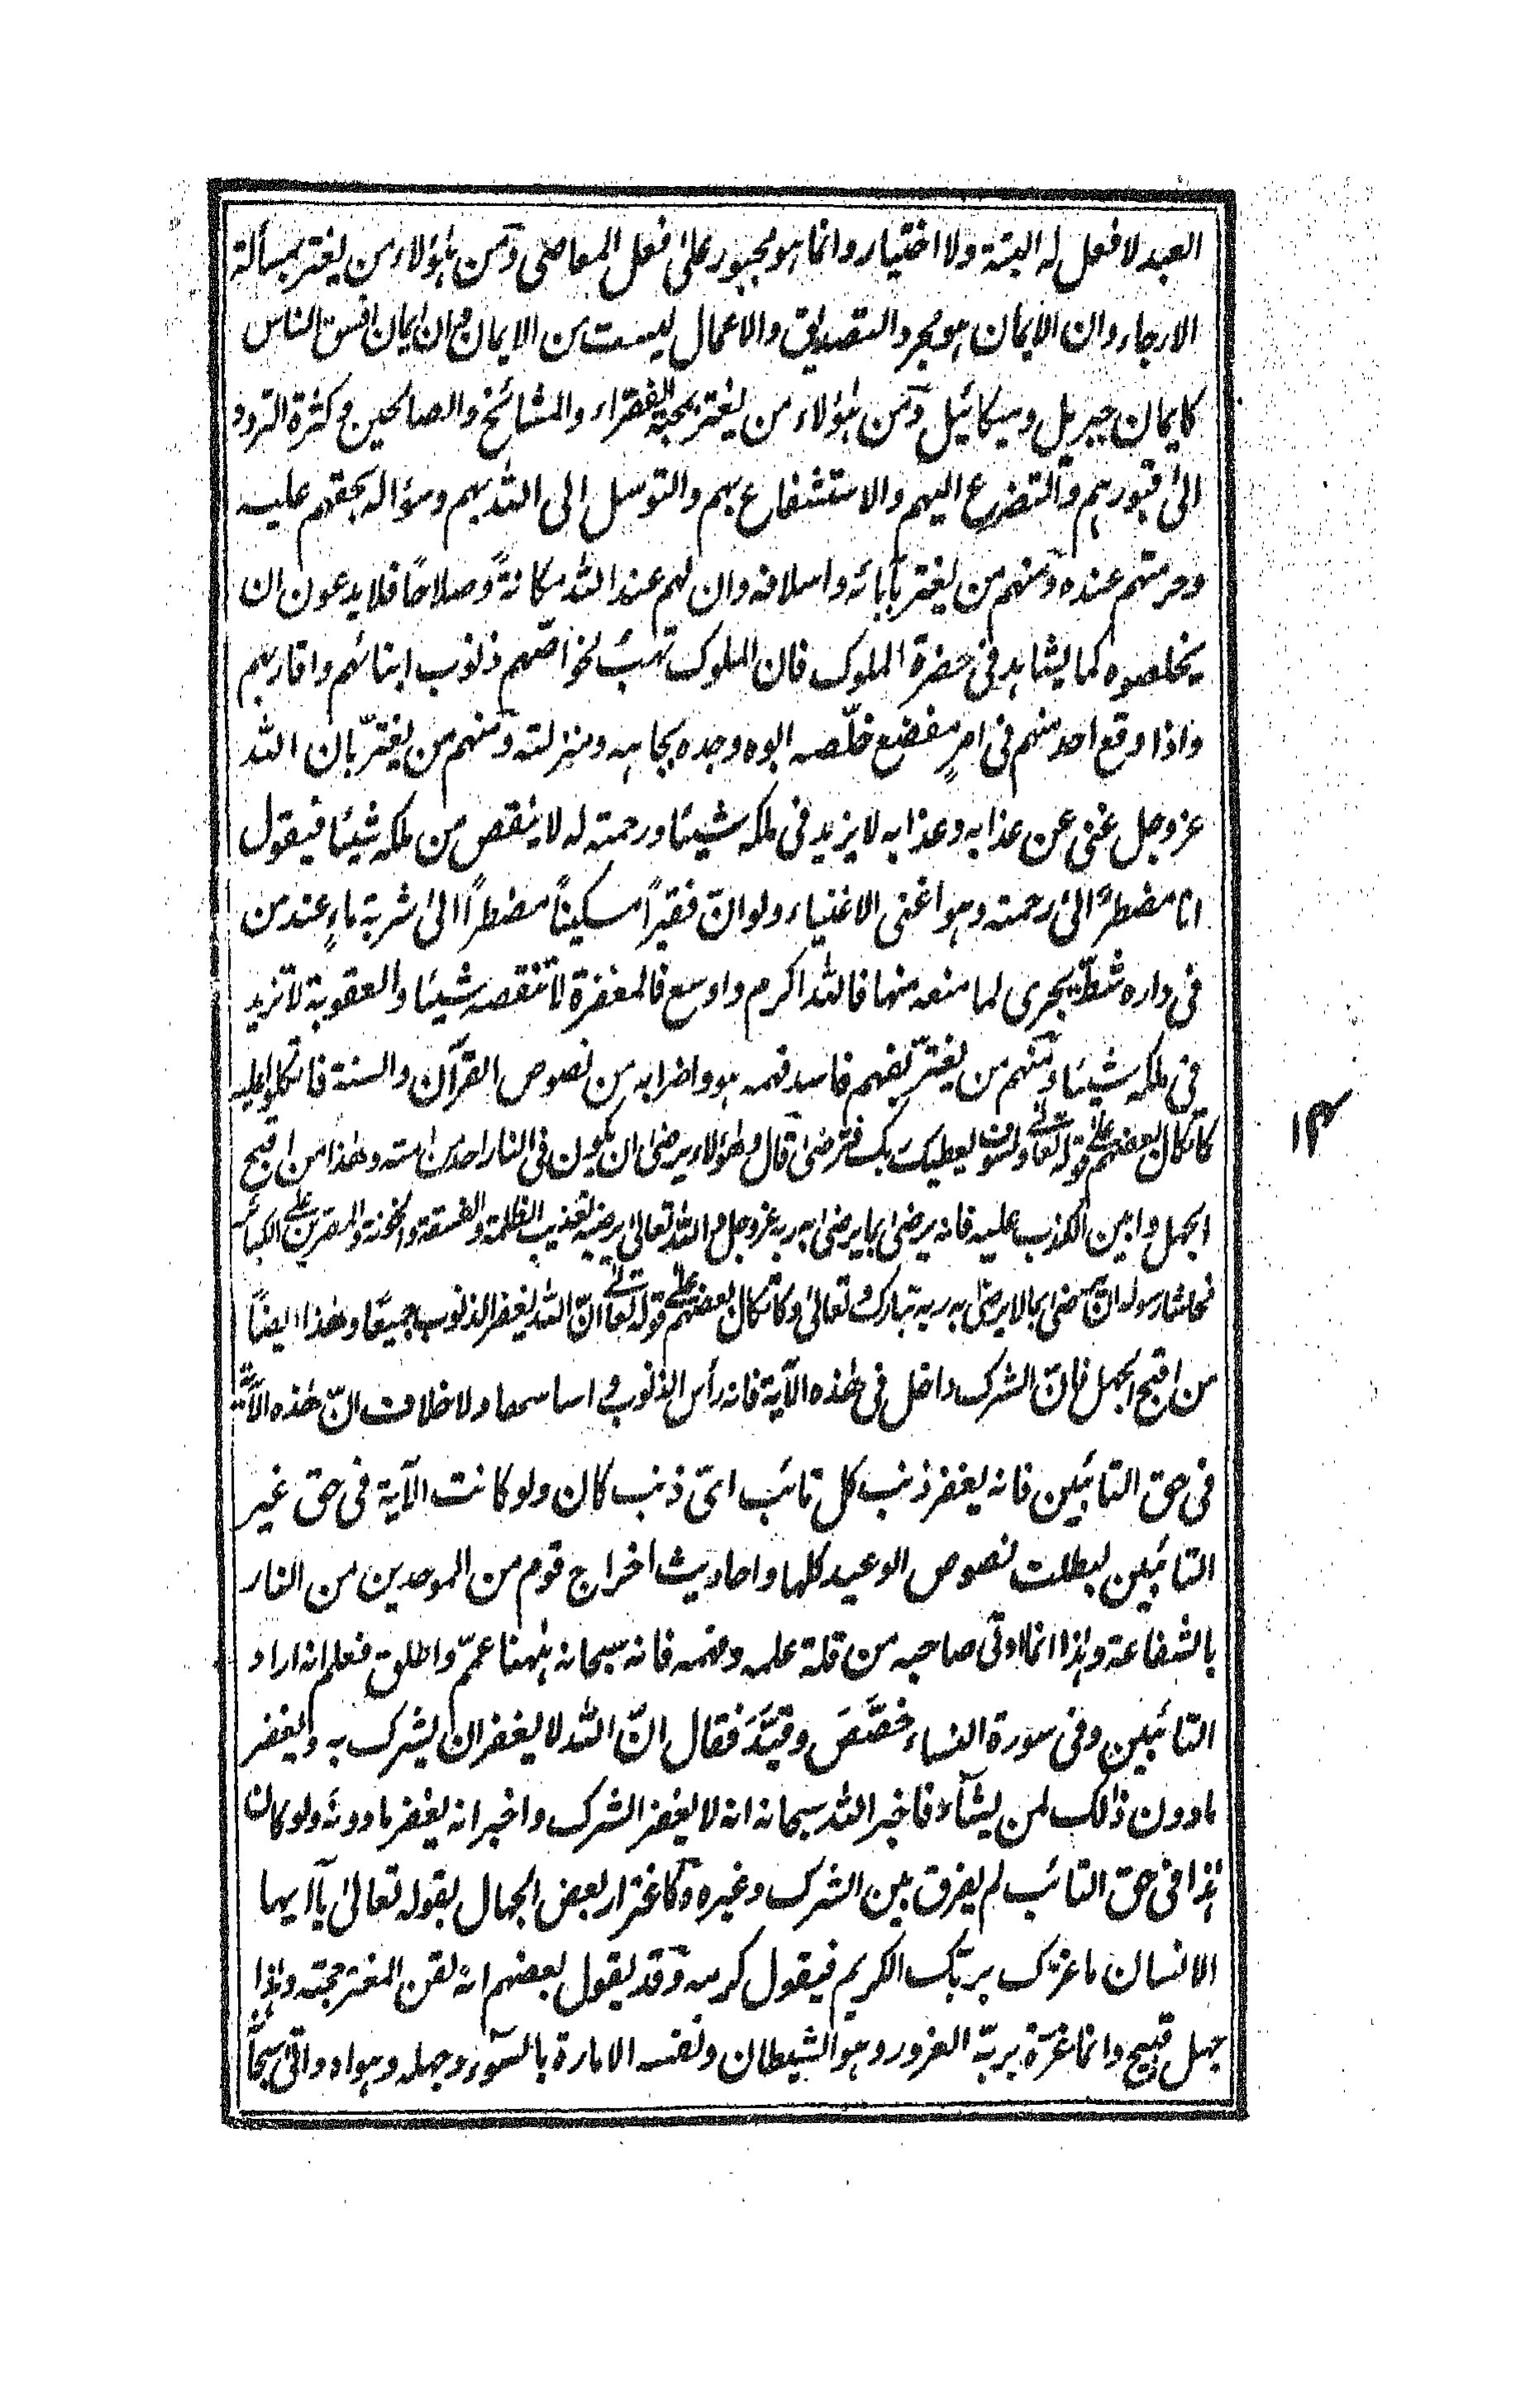 العبد لا فعل له البتة ولا اختيار وانما هو مجبور على فعل المعاصى ومن هؤلاء من يغتر بمسألة
الارجاء وان الايمان هو مجرد التصديق والاعمال ليست من الايمان وان ايمان افسق الناس
كايمان جبريل وميكائيل ومن هؤلاء من يغتر بمحبة الفقراء والمشائخ والصالحين وكثرة التردد
الى قبورهم والتضرع اليهم والاستشفاع بهم والتوسل الى الله بهم وسؤاله بحقهم عليه
وحرمتهم عنده ومنهم من يغتر بآبائه واسلافه وان لهم عند الله مكانةً وصلاحًا فلا يدعون ان
يخلصوه كما يشاهد فى حضرة الملوك فان الملوك تهب لخواصهم ذنوب ابنائهم واقاربهم
واذا وقع احد منهم فى امرٍ مفضع خلّصه ابوه وجده بجاهه ومنزلته ومنهم من يغترّ بان الله
عز وجل غنى عن عذابه وعذابه لا يزيد فى ملكه شيئا ورحمته له لا ينقص من ملكه شيئا فيقول
انا مضطرٌ الى رحمته وهو اغنى الاغنياء ولو انّ فقيرًا مسكينًا مضطرًا الى شربة ماءٍ عند من
فى داره شطٌ يجرى لما منعه منها فالله اكرم واوسع فالمغفرة لا تنقصه شيئا والعقوبة لا تزيد
فى ملكه شيئا ومنهم من يغتر بفهم فاسد فهمه هو واضرابه من نصوص القرآن والسنة فاتكلوا عليه
كاتكال بعضهم على قوله تعالى ولسوف يعطيك ربك فترضى قال وهؤلاء يرضى ان يكون فى النار احد من امته وهذا من اقبح
الجهل وابين الكذب عليه فانه يرضى بما يرضى به ربه عز وجل والله تعالى يرضيه تعذيب الظلمة والفسقة والخونة والمصرين على الكبائر
فحاشا رسوله ان يرضى بما لا يرضى به ربه تبارك وتعالى وكاتكال بعضهم على قوله تعالى انّ الله يغفر الذنوب جميعًا وهذا ايضًا
من اقبح الجهل فانّ الشرك داخل فى هذه الآية فانه رأس الذنوب واساسها ولا خلاف انّ هذه الآية
فى حق التائبين فانه يغفر ذنب كل تائب اىّ ذنب كان ولو كانت الآية فى حق غير
التائبين لبطلت نصوص الوعيد كلها واحاديث اخراج قوم من الموحدين من النار
بالشفاعة وهذا انما اوتى صاحبه من قلة علمه وفهمه فانه سبحانه ههنا عمّ واطلق فعلم انه اراد
التائبين وفى سورة النساء خصَّصَ وقيَّدَ فقال انّ الله لا يغفر ان يشرك به ويغفر
ما دون ذلك لمن يشآء فاخبر الله سبحانه انه لا يغفر الشرك واخبر انه يغفر ما دونه ولو كان
هذا فى حق التائب لم يفرق بين الشرك وغيره وكاغترار بعض الجهال بقوله تعالى يآايها
الانسان ما غرّك بربّك الكريم فيقول كرمه وقد يقول بعضهم انه لقن المغتر حجته وهذا
جهل قبيح وانما غرّه بربّه الغرور وهو الشيطان ونفسه الامارة بالسّوء وجهله وهواه واتى سبحانه
١٣